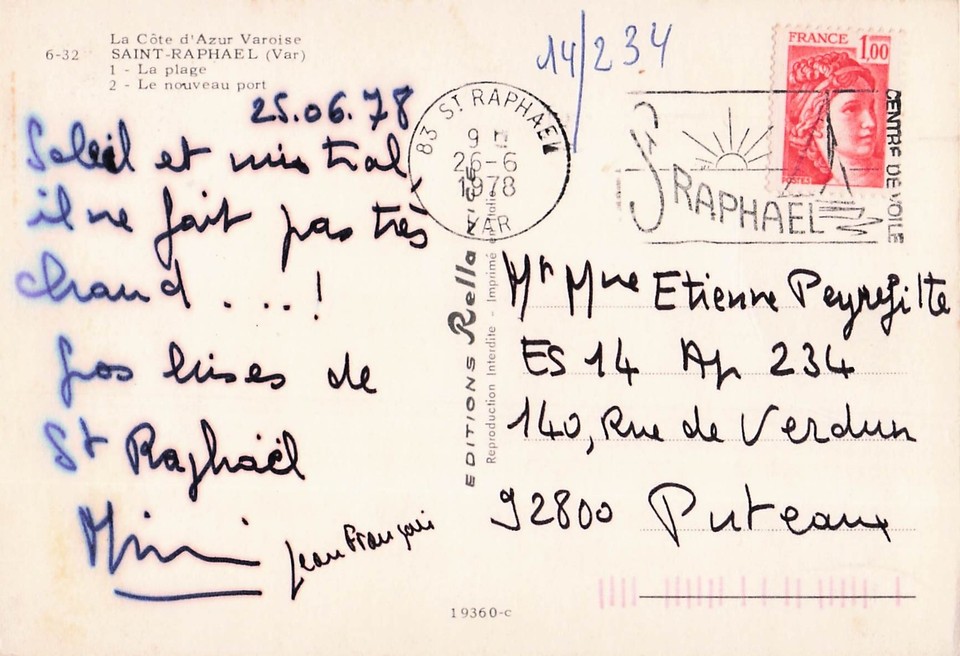 La Côte d'Azur Varoise
6-32 SAINT-RAPHAEL (Var)
1 - La plage
2 - Le nouveau port
25.06.78
Soleil et mistral
il ne fait pas très
chaud . . . !
Gros bises de
St Raphaël
Mimi
Jean François
14/234
83 ST RAPHAEL
9 H
26-6
1978
VAR
FRANCE 1,00
POSTES
ST RAPHAEL
CENTRE DE VOILE
EDITIONS Rella NICE
Reproduction Interdite - Imprimé en Italie
Mr Mme Etienne Peyrefitte
ES 14 Ap 234
140, Rue de Verdun
92800 Puteaux
19360-c